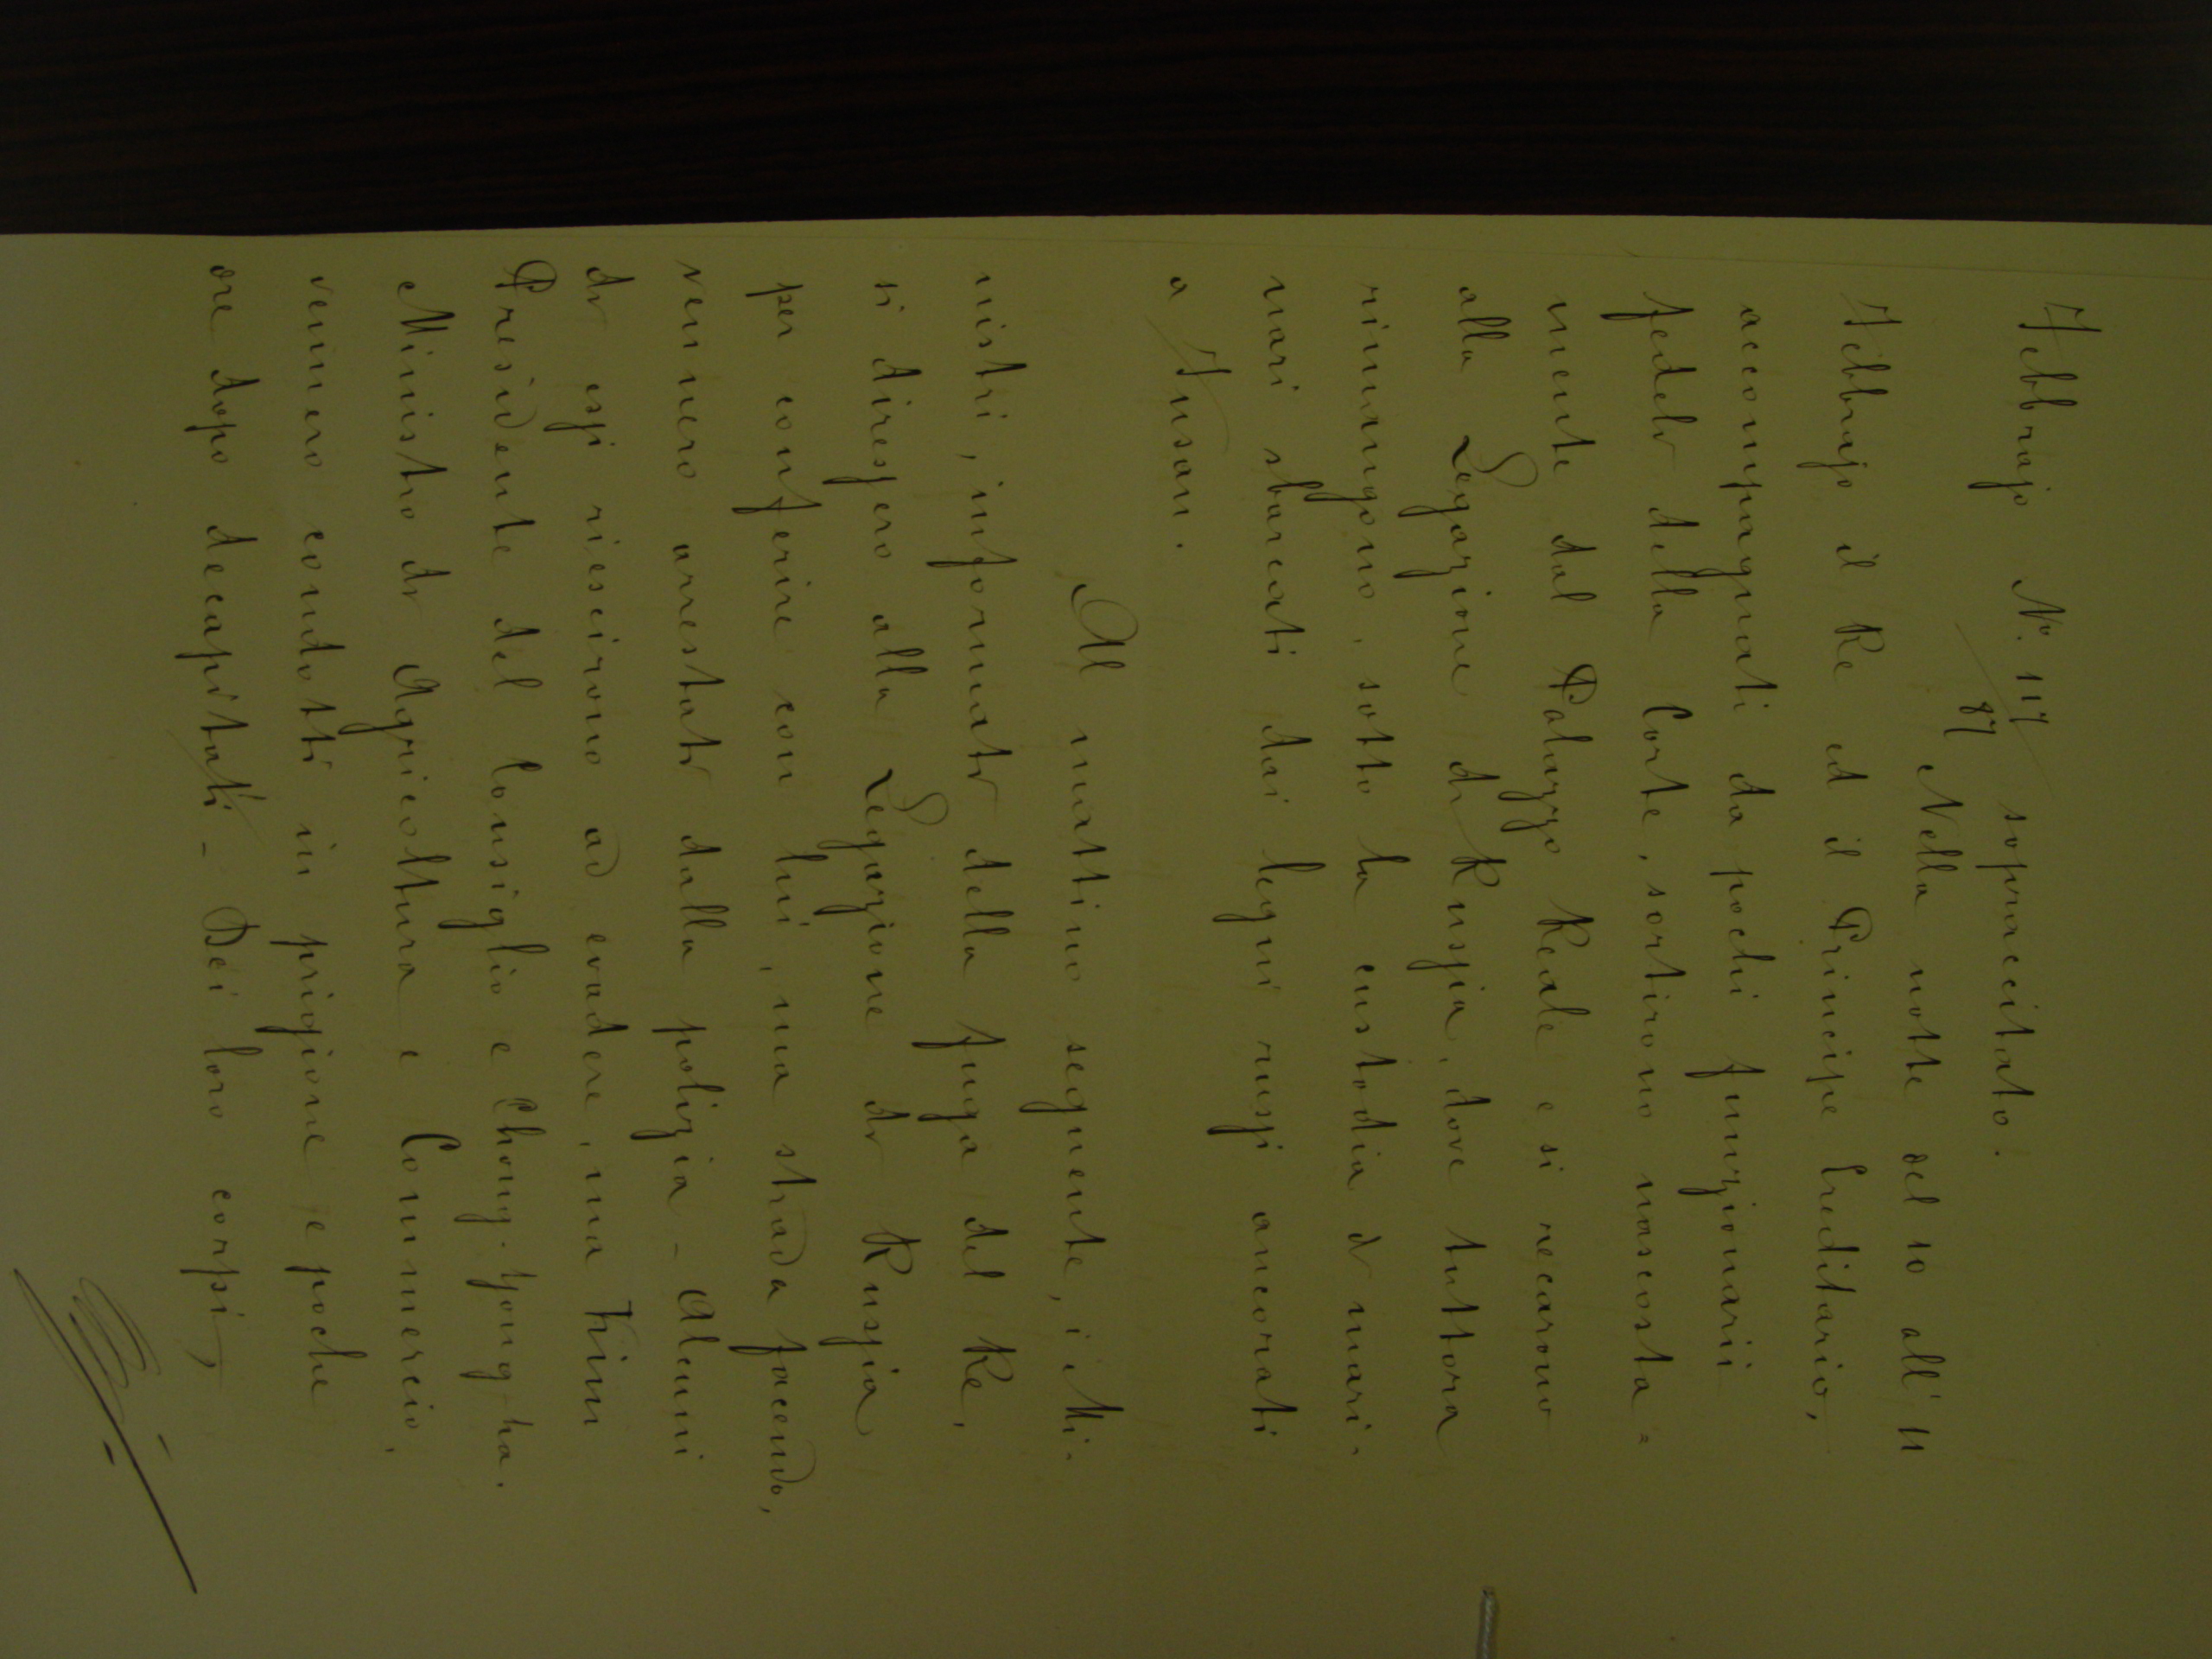 Febbrajo N.º 117/87 sopracitato.
Nella notte del 10 all' 11
Febbrajo il Re ed il Principe Ereditario,
accompagnati da pochi funzionarii
fedeli della Corte, sortirono nascosta=
mente dal Palazzo Reale e si recarono
alla Legazione di Russia, dove tuttora
rimangono, sotto la custodia di mari-
nari sbarcati dai legni russi ancorati
a Fusan.
Al mattino seguente, i Mi-
nistri, informati della fuga del Re,
si diressero alla Legazione di Russia
per conferire con lui, ma strada facendo,
vennero arrestati dalla polizia - Alcuni
di essi riescirono ad evadere, ma Kim
Presidente del Consiglio e Chong-Yong-ha.
Ministro di Agricoltura e Commercio,
vennero condotti in prigione e poche
ore dopo decapitati - Dei loro corpi,